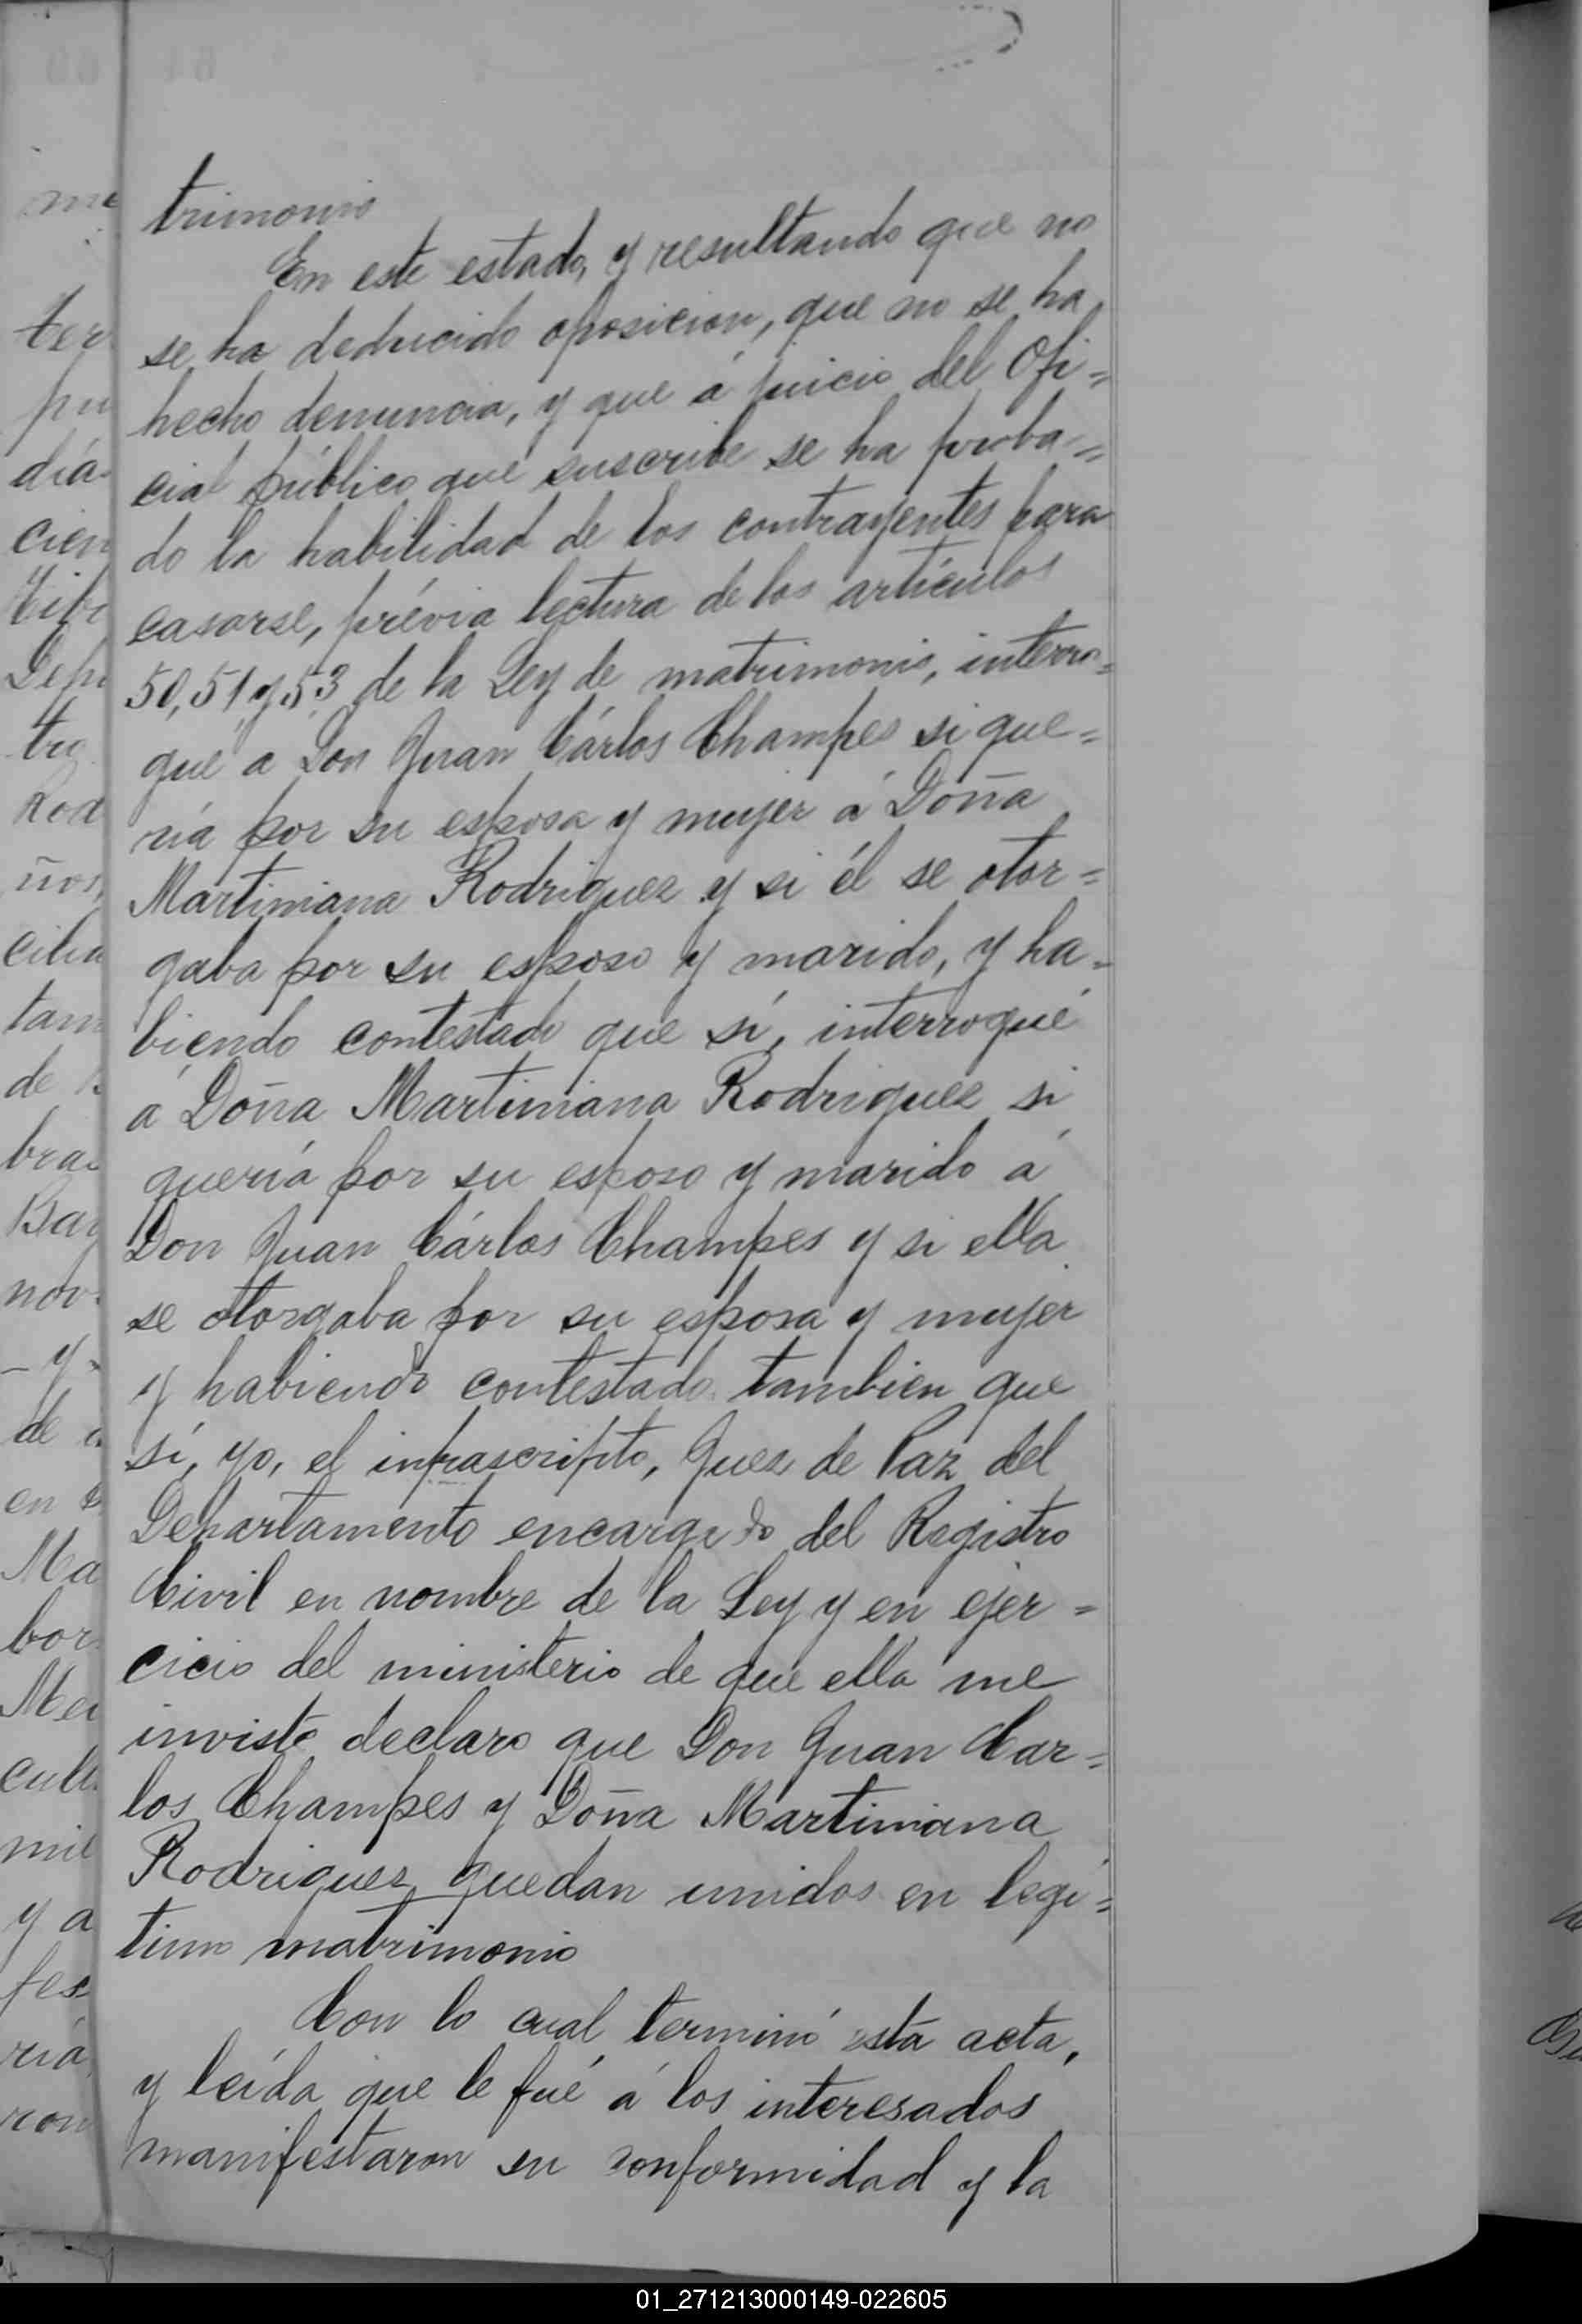 trimonio
En este estado, y resultando que no
se ha deducido oposicion, que no se ha
hecho denuncia, y que á juicio del Ofi=
cial público que suscribe se ha proba=
do la habilidad de los contrayentes para
casarse, prévia lectura de los artículos
50, 51 y 53 de la Ley de matrimonio, interro=
gué a Don Juan Cárlos Champes si que=
ría por su esposa y mujer á Doña
Martiniana Rodriguez y si él se otor=
gaba por su esposo y marido, y ha=
biendo contestado que sí, interrogué
á Doña Martiniana Rodriguez si
quería por su esposo y marido á
Don Juan Cárlos Champes y si ella
se otorgaba por su esposa y mujer
y habiendo contestado tambien que
sí, yo, el infrascripto, Juez de Paz del
Departamento encargado del Registro
Civil en nombre de la Ley y en ejer=
cicio del ministerio de que ella me
inviste declaro que Don Juan Car=
los Champes y Doña Martiniana
Rodriguez quedan unidos en legí=
timo matrimonio
Con lo cual terminó esta acta,
y leída que le fué á los interesados
manifestaron su conformidad y la
01_271213000149-022605